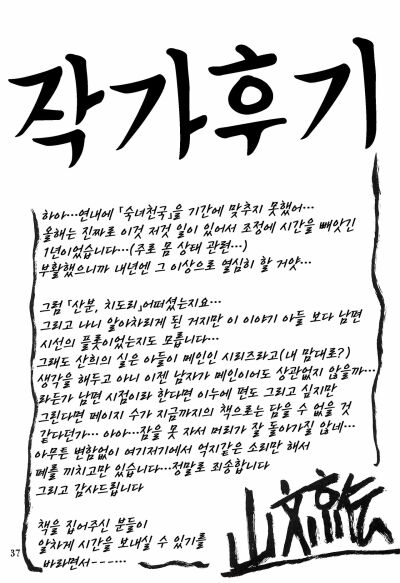 작가후기
하아…연내에 「숙녀천국」을 기간에 맞추지 못했어…
올해는 진짜로 이것 저것 일이 있어서 조정에 시간을 빼앗긴
1년이었습니다…(주로 몸 상태 관련…)
부활했으니까 내년엔 그 이상으로 열심히 할 거얏…
그럼 「산분, 치도리」어떠셨는지요…
그리고 나니 알아차리게 된 거지만 이 이야기 아들 보다 남편
시선의 플롯이었는지도 모릅니다…
그래도 산희의 실은 아들이 메인인 시리즈라고(내 맘대로?)
생각을 해두고 아니 이젠 남자가 메인이어도 상관없지 않을까…
라든가 남편 시점이라 한다면 이누에 편도 그리고 싶지만
그린다면 페이지 수가 지금까지의 책으로는 담을 수 없을 것
같다던가… 아아…잠을 못 자서 머리가 잘 돌아가질 않네…
아무튼 변함없이 여기저기에서 억지같은 소리만 해서
폐를 끼치고만 있습니다…정말로 죄송합니다
그리고 감사드립니다
책을 집어주신 분들이
알차게 시간을 보내실 수 있기를
바라면서----…
山文京伝
37